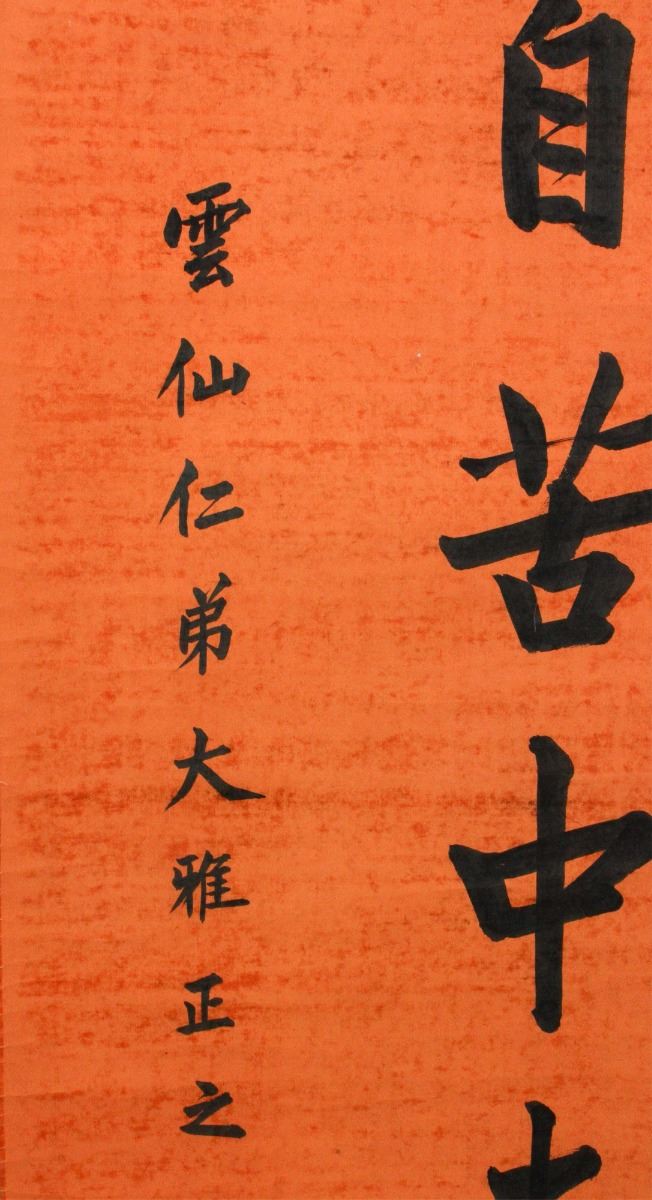 自苦中
雲仙仁弟大雅正之